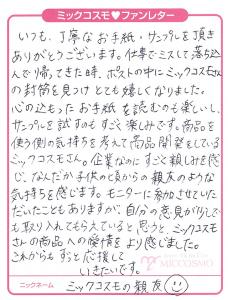 ミックコスモ♥ファンレター
いつも、丁寧なお手紙・サンプルを頂き
ありがとうございます。仕事でミスして落ち込
んで帰ってきた時、ポストの中にミックコスモさん
の封筒を見つけとても嬉しくなりました。
心の込もったお手紙を読むのも楽しいし、
サンプルを試すのもすごく楽しみです。商品を
使う側の気持ちを考えて商品開発をしている
ミックコスモさん。企業なのにすごく親しみを感
じ、なんだか子供の頃からの親友のような
気持ちを感じます。モニターに参加させていた
だいたこともありますが、自分の意見が少しで
も取り入れてもらえていると思うと、ミックコスモ
さんの商品への愛情をより感じました。
これからもずっと応援して
いきたいです。
MICCOSMO
ニックネーム ミックコスモの親友